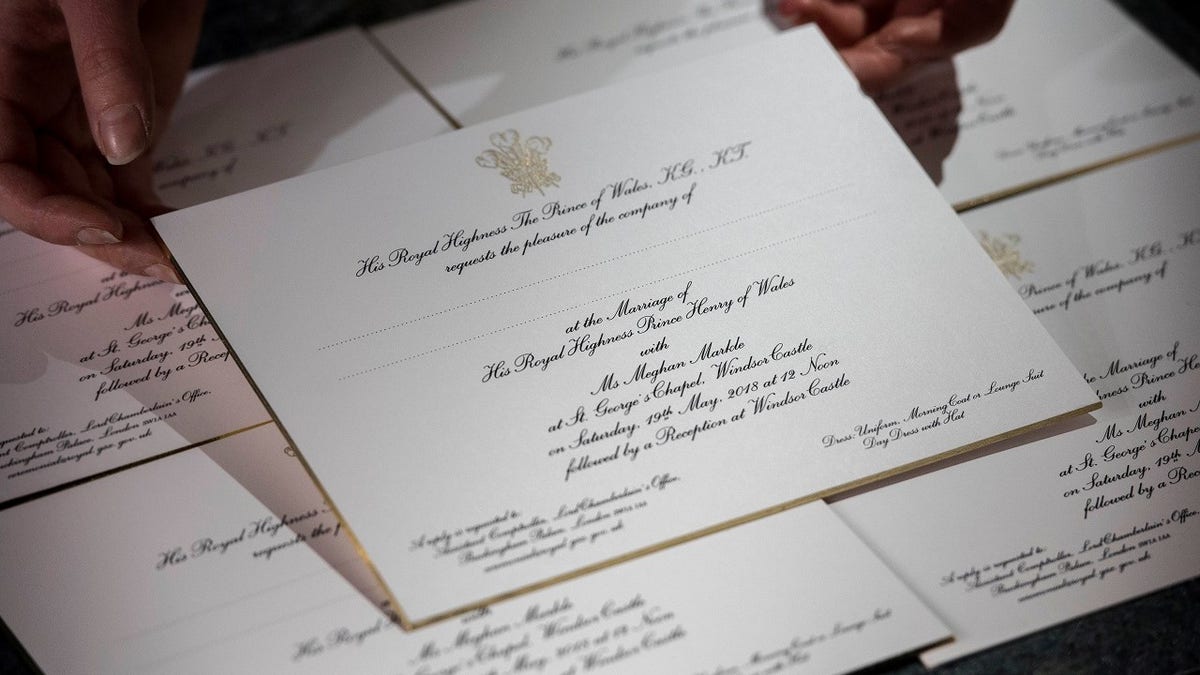 Wales, K.G., K.T.
company of
His Royal Highness
requests the pleasure
His Royal Highness The Prince of Wales, K.G., K.T.
requests the pleasure of the company of
at the Marriage of
His Royal Highness Prince Henry of Wales
with
Ms Meghan Markle
at St. George's Chapel, Windsor Castle
on Saturday, 19th May, 2018 at 12 Noon
followed by a Reception at Windsor Castle
Dress: Uniform, Morning Coat or Lounge Suit
Day Dress with Hat
A reply is requested to:
Assistant Comptroller, Lord Chamberlain's Office,
Buckingham Palace, London SW1A 1AA
at the
His Royal Highness
Ms Megh
at St. George's Cha
on Saturday, 19th Ma
followed by a Rece
requested to:
Comptroller, Lord Chamberlain's Office,
Buckingham Palace, London SW1A 1AA
Prince of Wales, K.G., K.
of the company of
Marriage of
ness Prince He
with
Ms Meghan M
at St. George's Chapel
on Saturday, 19th
followed by a Rece
A reply is requested to:
Assistant Comptroller, Lord Chamberlain's Office,
Buckingham Palace, London SW1A 1AA
His Royal Highness
requests the p
His Royal
Ms Meghan Markle
George's Chapel, Windsor Castle
May, 2018 at 12 Noon
Windsor Castle
Morning Coat or Lounge Suit
with Hat